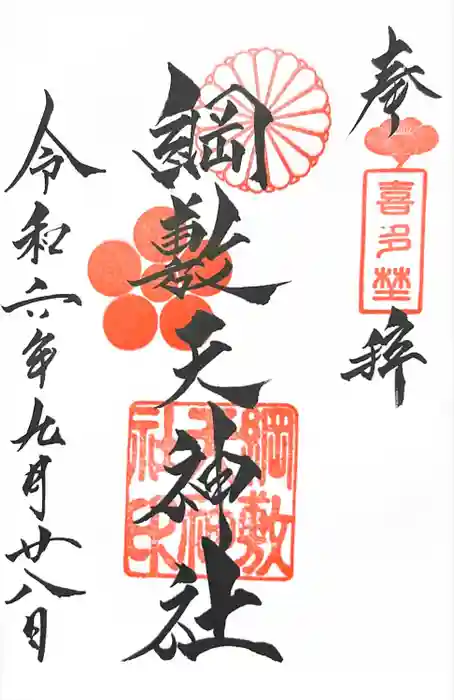 奉拝
喜多埜
綱敷天神社
綱敷天神社印
令和六年九月廿八日